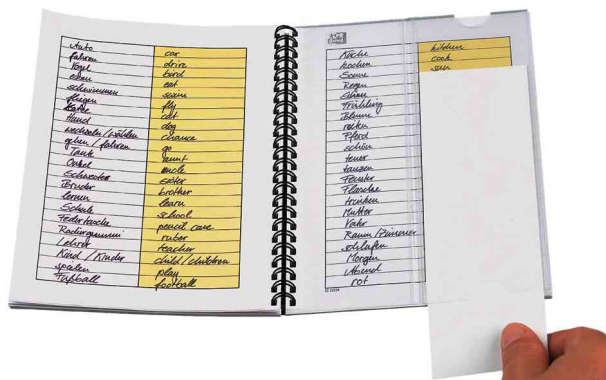 Auto car
fahren drive
Vogel bird
essen eat
schwimmen swim
fliegen fly
Katze cat
Hund dog
wechseln / wählen chance
gehen / fahren go
Tante aunt
Onkel uncle
Schwester sister
Bruder brother
lernen learn
Schule school
Federtasche pencil case
Radiergummi ruber
Lehrer teacher
Kind / Kinder child / children
spielen play
Fußball football
Küche kitchen
kochen cook
Sonne sun
Regen
Schnee
Frühling
Blume
reiten
Pferd
schön
teuer
tanzen
Fenster
Flasche
trinken
Mutter
Vater
Raum / Zimmer
schlafen
Morgen
Abend
rot